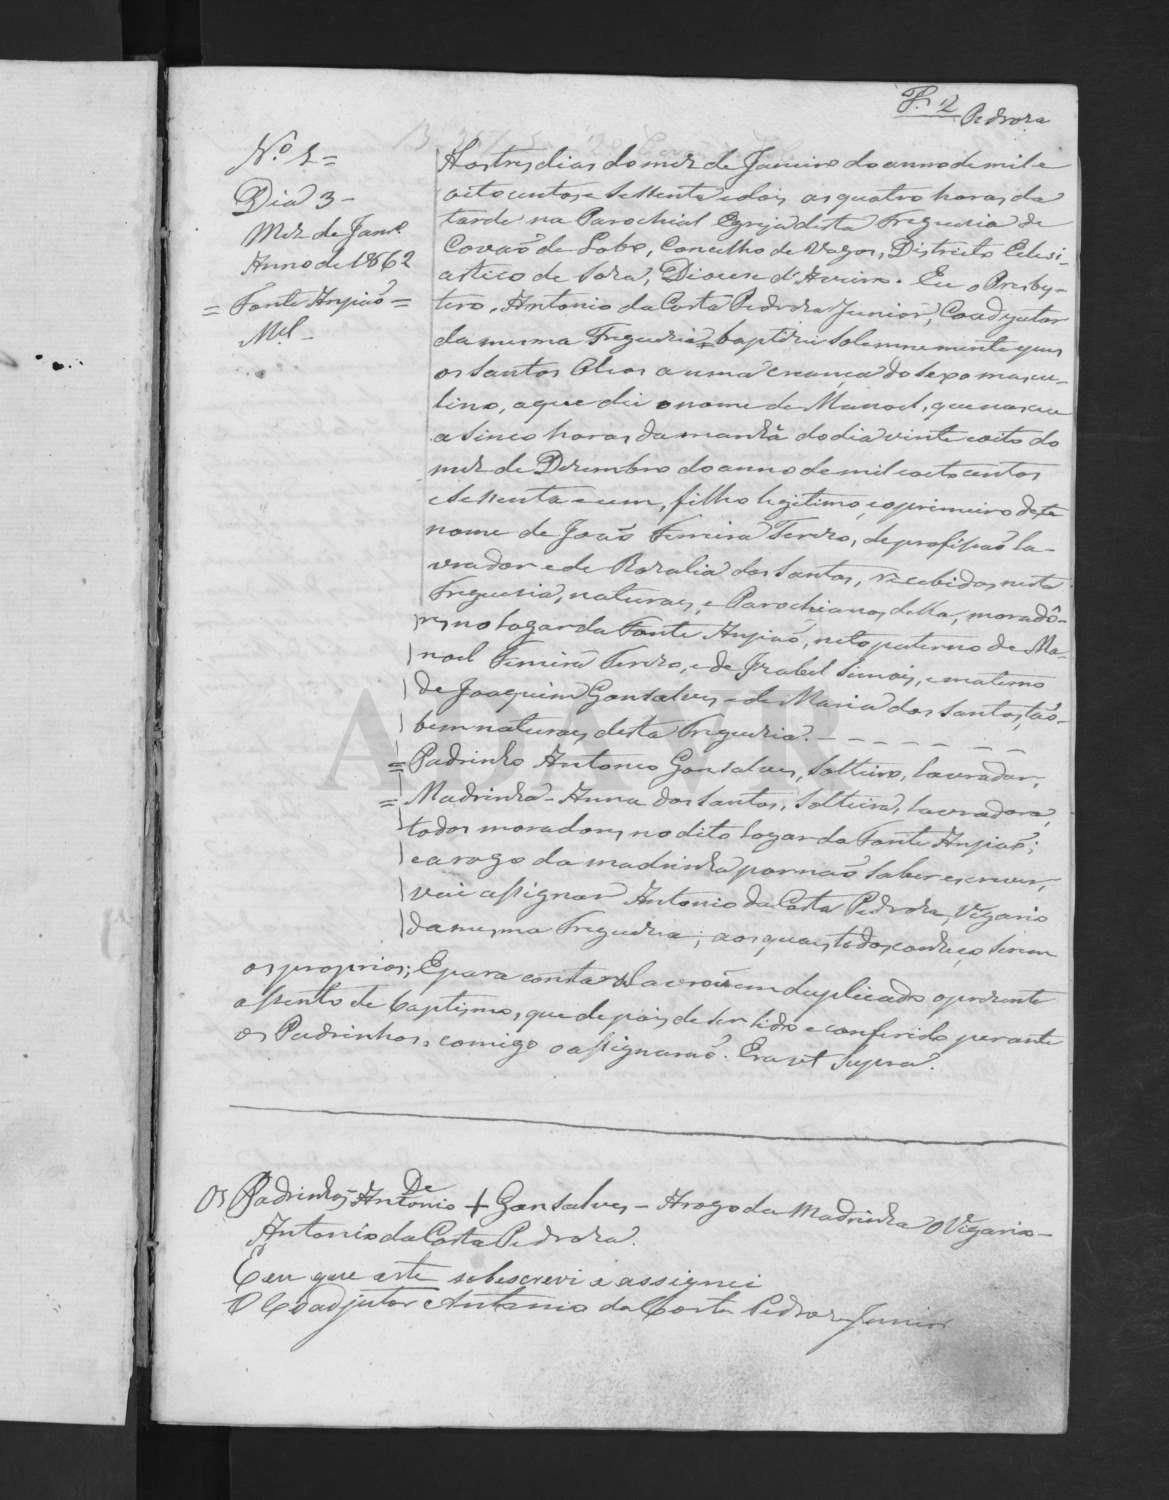 F. 2 Pedroza
N.º 1 =
Dia 3 -
Mez de Jan.º
Anno de 1862
= Fonte Anjiaõ =
Mel -
Aos tres dias do mez de Janeiro do anno de mil e
oito centos e sessenta e dois as quatro horas da
tarde na Parochial Egreja desta Freguezia de
Covaõ de Lobo, Concelho de Vagos, Districto Eclesi-
astico de Soza, Diocese d'Aveiro. Eu o Presby-
tero, Antonio da Costa Pedroza Junior, Coadjutor
da mesma Freguezia = baptizei solemnemente e pus
os Santos Oleos a uma creança do sexo mascu-
lino, a que dei o nome de Manoel, que nasceu
a sinco horas da manhã do dia vinte e oito do
mez de Dezembro do anno de mil e oito centos
e sessenta e um, filho legitimo, e o primeiro deste
nome de Joaõ Ferreira Terrzo, de profissaõ la-
vrador e de Rozalia dos Santos, recebidos nesta
Freguesia, naturaes, e Parochianos della, moradô-
res no Logar da Fonte Anjiaõ, neto paterno de Ma-
noel Ferreira Terrzo, e de Izabel Simois, e materno
de Joaquim Gonsalves e de Maria dos Santos, tão-
bem naturaes desta Freguezia. - - - - - - -
= Padrinho Antonio Gonsalves, Solteiro, lavrador,
= Madrinha - Anna dos Santos, Solteira, lavradora,
todos moradores no dito Logar da Fonte Anjiaõ;
e a rogo da madrinha por naõ saber escrever,
vai assignar Antonio da Costa Pedroza, Vigario
da mesma Freguezia; aos quais todos conheço serem
os proprios; E para constar lavrei em duplicado o prezente
assento de baptismo, que depois de ser lido e conferido perante
os Padrinhos, comigo o assignamõ. Era ut Supra.
Os Padrinhos, Antonio De + Gonsalves - A rogo da Madrinha o Vigario -
Antonio da Costa Pedroza.
E eu que este sobescrevi e assignei
O Coadjutor Antonio da Costa Pedroza Junior
ADAVR